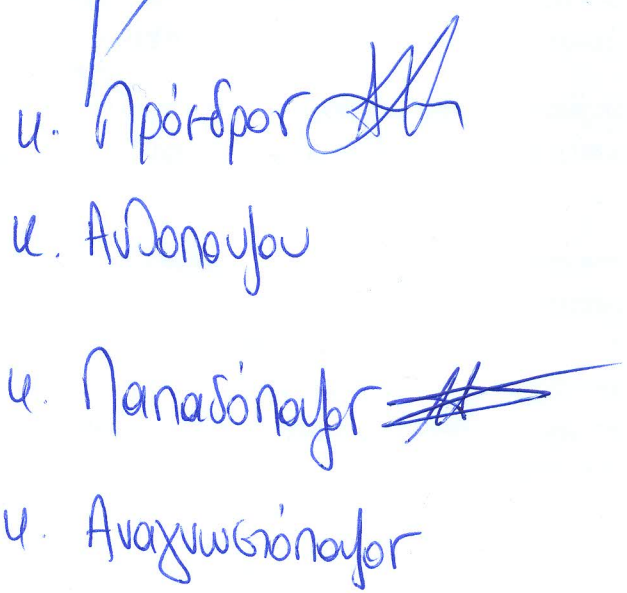 κ. Πρόεδρος
κ. Ανθοπουλου
κ. Παπαδόπουλος
κ. Αναγνωστόπουλος